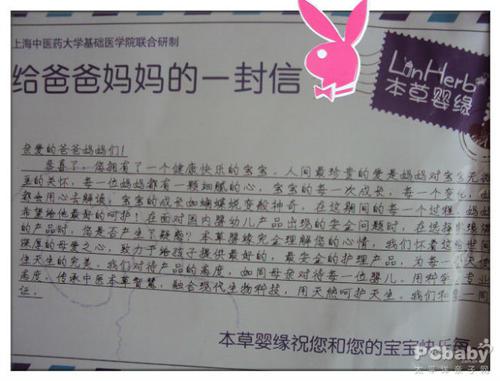 上海中医药大学基础医学院联合研制
给爸爸妈妈的一封信
LinHerb
本草婴缘
亲爱的爸爸妈妈们!
恭喜了,您拥有了一个健康快乐的宝宝。人间最珍贵的爱是妈妈对宝宝无微
至的关怀,每一位妈妈都有一颗细腻的心,宝宝的每一次成长,每一个变化,
都会用心去解读,宝宝的成长如蝴蝶蜕变般神奇,在这期间的每一个过程,妈妈
希望给他最好的呵护!在面对国内婴幼儿产品出现的安全问题时,在选择
的产品时,您是否产生了疑惑?本草婴缘完全理解您的心情,我们怀着这世间
深厚的母爱之心,致力于给孩子提供最好的,最安全的护理产品,为每一
住天生的完美。我们对待产品的态度,如同母亲对待每一位婴儿,用科学、专业
态度,传承中医本草智慧,融合现代生物科技,用天然呵护天生。我们和 一同
证。
本草婴缘祝您和您的宝宝快乐每
PCbaby
太平洋亲子网